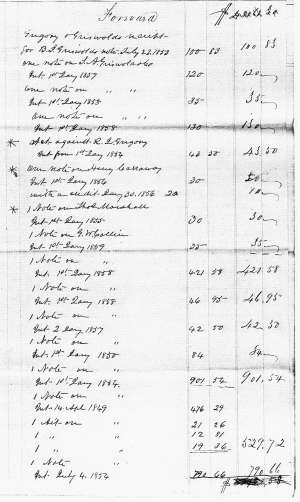 Forward
Gregory & Griswolds receipt
for B.F. Griswolds note July 22. 1858 100 83 100 83
one note on
Int 1st Jany 1857 120 120
one note on " "
Int 1st Jany 1858 35 35
one note on " "
Int 1st Jany 1858 130 130
* Act against R. L. Gregory
Int from 1st Jany 1854 43 50 43.50
* one note on Henry
Int 1st Jany 1856 30
with a credit Jany 30. 1856
* 1 Note on Thos Marshall
Int 1st Jany 1855 30 30
1 Note on
Int 1st Jany 1859 35 35
1 Note on "
Int 1st Jany 1858 421 58 421.58
1 Note on "
Int 1st Jany 1858 46 95 46.95
1 Note on "
Int 2 Jany 1857 42 50 42.50
1 Note on "
Int 1st Jany 1850 84 84
1 Note on "
Int 1st Jany 1854 901 54 901.54
1 Note on "
Int 14 Apl 1849 476 29
1 Act on " 21 26
1 " " 12 81
1 " " 19 36 529.72
1 Note "
Int July 4. 1854 790 66 790 66